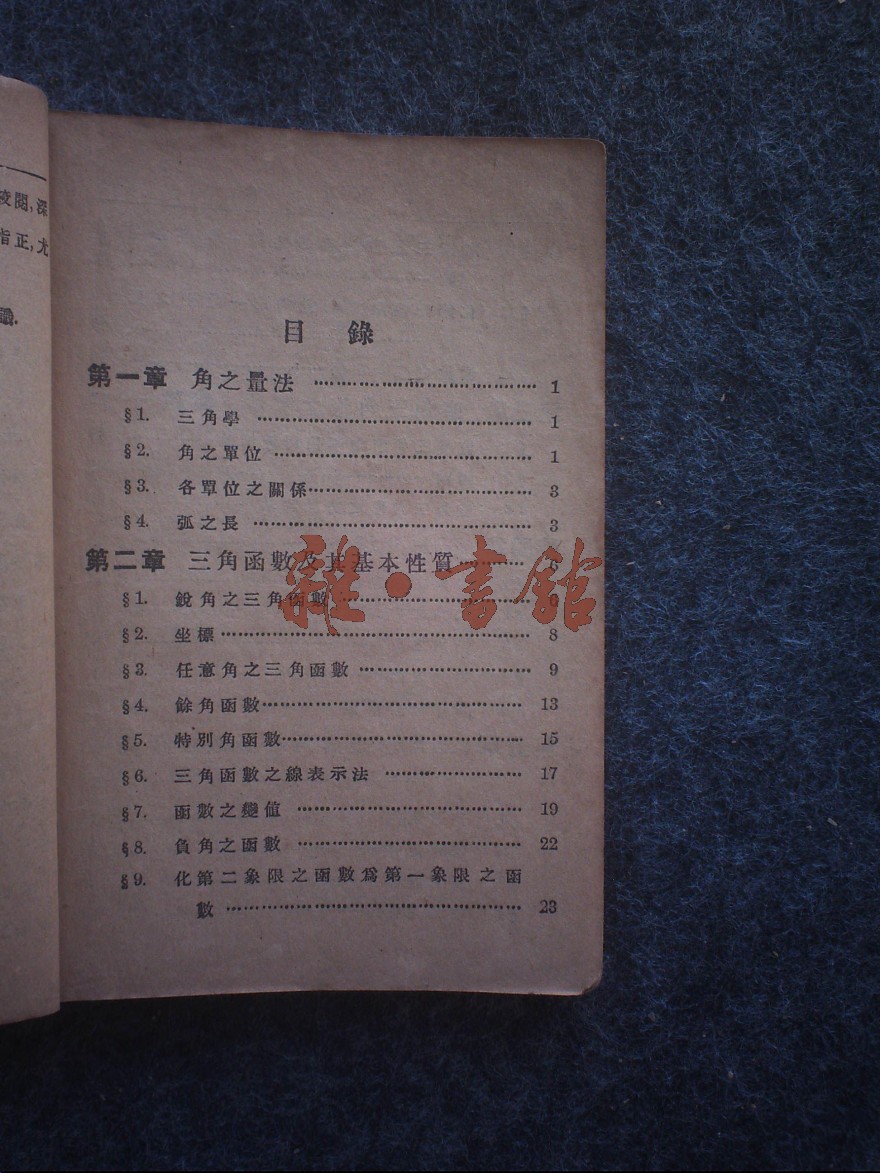 校閱,深
指正,尤
識.
目錄
第一章 角之量法 …………………………… 1
§1. 三角學 …………………………… 1
§2. 角之單位 …………………………… 1
§3. 各單位之關係 …………………………… 3
§4. 弧之長 …………………………… 3
第二章 三角函數及其基本性質 ………… 6
§1. 銳角之三角函數 …………………… 6
§2. 坐標 …………………………… 8
§3. 任意角之三角函數 …………………… 9
§4. 餘角函數 …………………………… 13
§5. 特別角函數 …………………………… 15
§6. 三角函數之線表示法 ……………… 17
§7. 函數之變值 …………………………… 19
§8. 負角之函數 …………………………… 22
§9. 化第二象限之函數爲第一象限之函
數 …………………………… 23
雜·書館